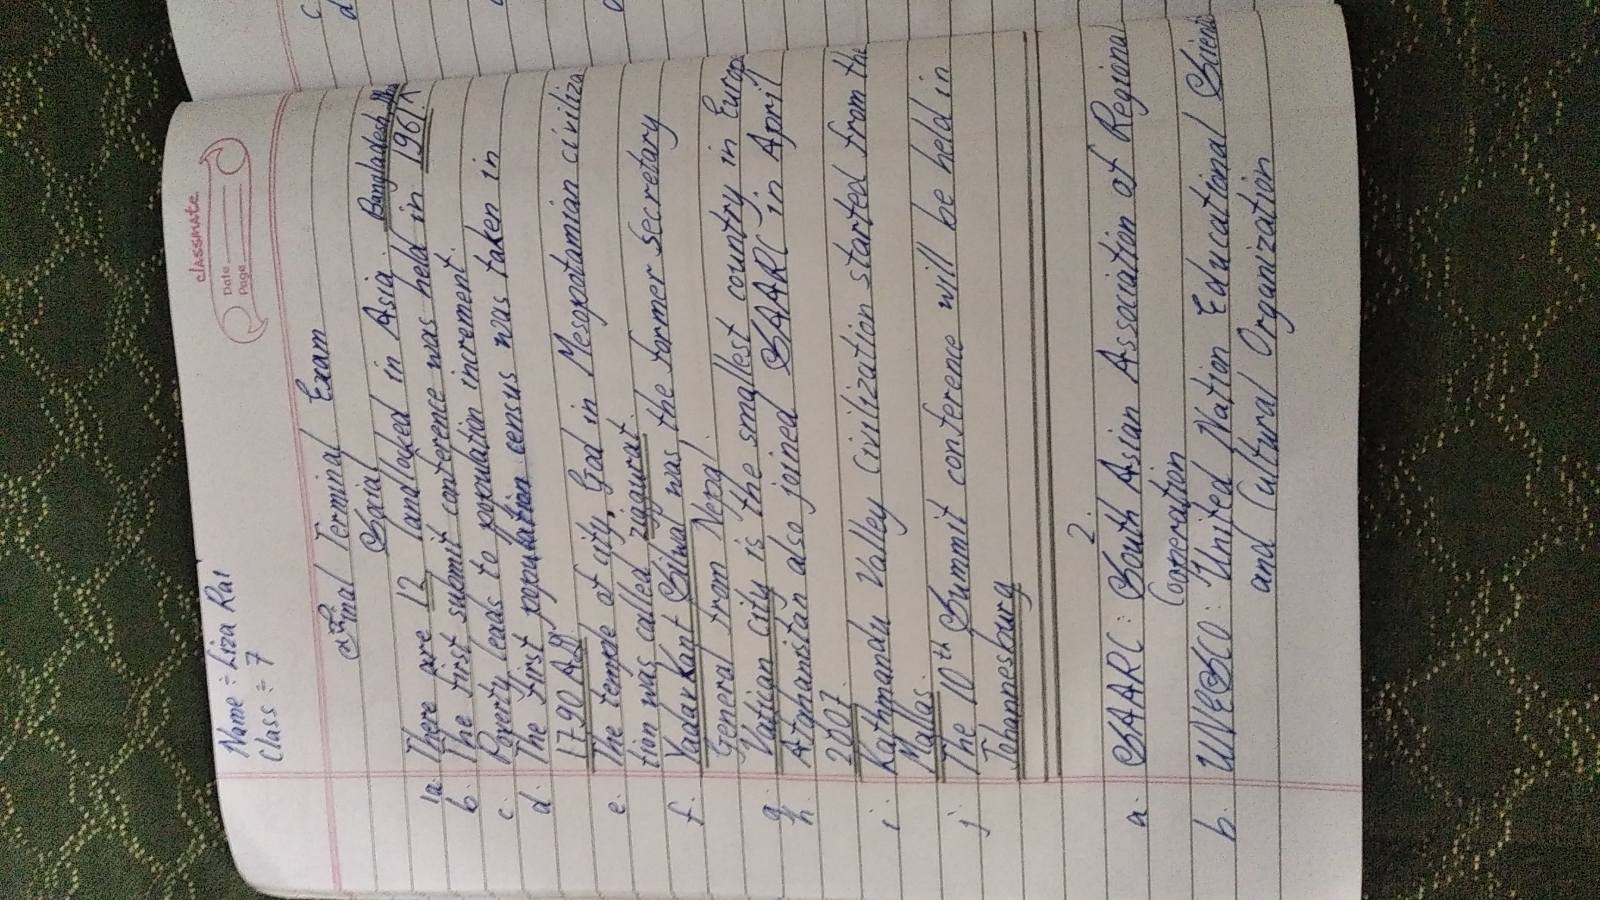 classmate
Date
Page
Name :- Liza Rai
Class :- 7
Final Terminal Exam
Social
1a. There are 12 landlocked in Asia. Bangladesh
b. The first submit conference was held in 1961
c. Poverty leads to population increment.
d. The first population census was taken in
1790 A.D
e. The temple of city God in Mesopotamian civiliza
tion was called ziggurat.
f. Yadav Kant Silwal was the former secretary
General from Nepal.
g. Vatican city is the smallest country in Europe
h. Afghanistan also joined SAARC in April
2007.
i. Kathmandu Valley Civilization started from the
Mallas.
j. The 10th Summit conference will be held in
Johannesburg
2.
a. SAARC: South Asian Association of Regional
Cooperation
b. UNESCO: United Nation Educational Scienti
and Cultural Organization